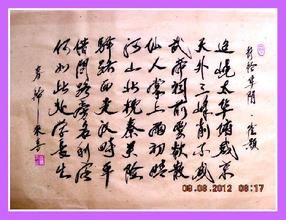 行经华阴 崔颢
岧峣太华俯咸京
天外三峰削不成
武帝祠前雲欲散
仙人掌上雨初晴
河山北枕秦关险
驿路西连汉畤平
借问路旁名利客
何如此处学长生
09.08.2012 08:17